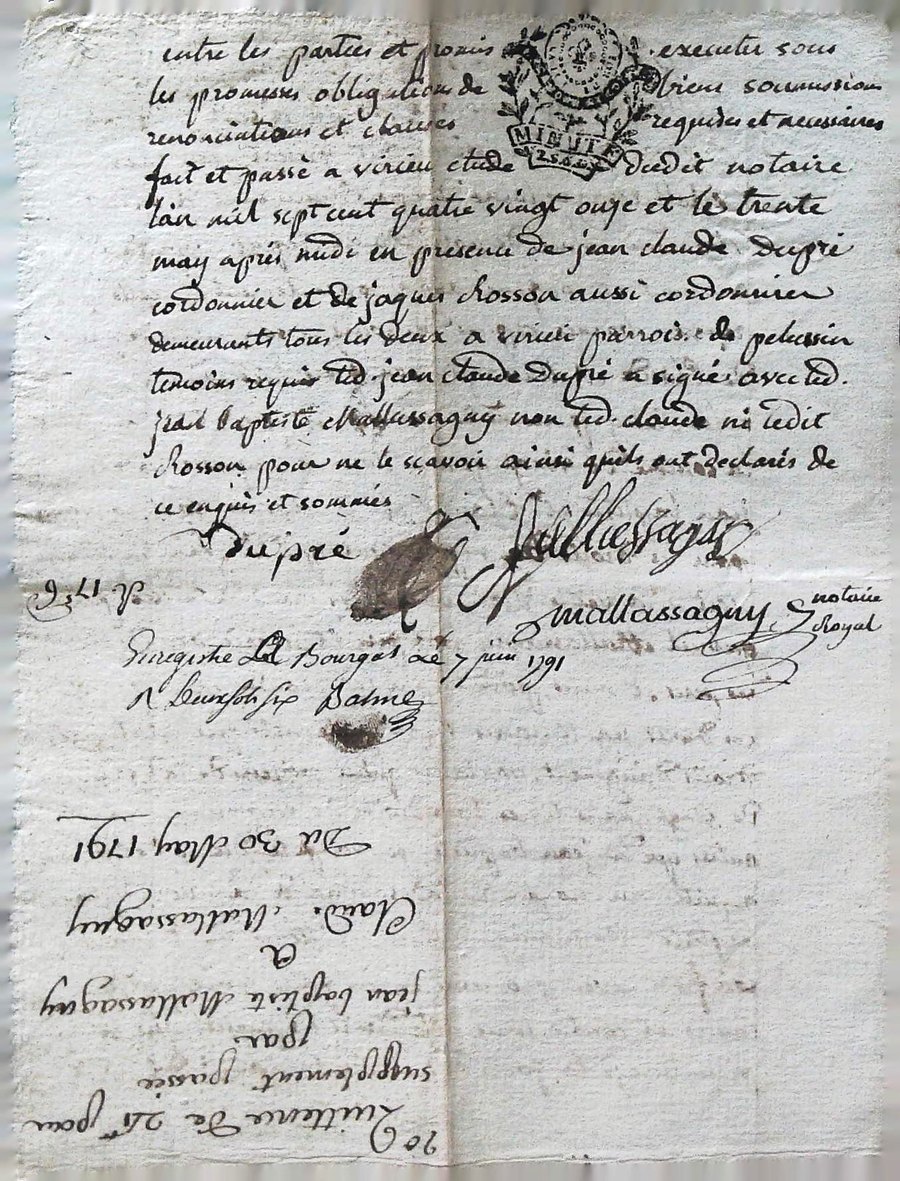 entre les parties et promis executer sous
les promesses obligations de biens soumissions
renonciations et clauses requises et necessaires
fait et passé a virieu etude dudit notaire
l'an mil sept cent quatre vingt onze et le trente
may aprés midi en presence de jean claude Dupré
cordonnier et de jaques Rosson aussi cordonnier
demeurants tous les deux a virieu parroisse de pelussin
temoins requis led. jean claude Dupré a signé avec led.
jean baptiste Mallassagny non led. claude ni ledit
Rosson pour ne le scavoir ainsi quils ont declarés de
ce enquis et sommés
MINUTE
Dupré
Mallassagny
mallassagny notaire
Royal
Enregistré Bourgas Le 7 juin 1791
R deux sols six Balme
20 Quittence de 24 pour
supplement passée
par
jean baptiste Mallassagny
a
Claud. Mallassagny
Du 30 May 1791